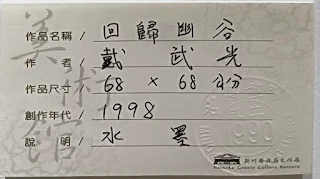 作品名稱/ 回歸幽谷
作者/ 戴武光
作品尺寸/ 68×68公分
創作年代/ 1998
說明/ 水墨
美術館
新竹縣政府文化局
Hsinchu County Culture Bureau